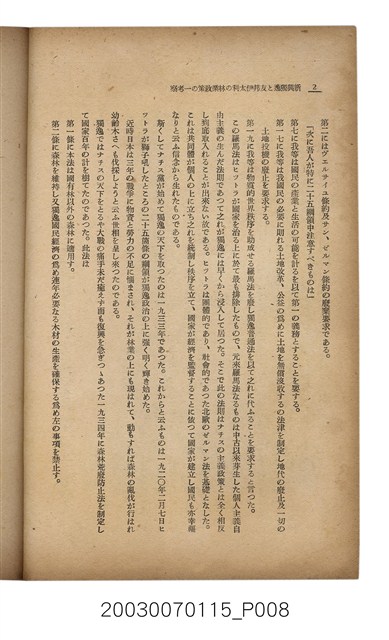 2 新興獨逸と友邦伊太利の林業政策の一考察
第二にはヴェルサイユ條約及サン、ゼルマン條約の廢棄要求である。
「次に吾人が特に二十五綱領中注意すべきものは」
第七に我等は國民の産業と生活の可能を計るを以て第一の義務とすることを要する。
第一七に我等は我國民の必要に則れる土地改革、公益の爲めに土地を無償沒收するの法律を制定し地代の廢止及一切の
土地投機の廢止を要求する。
第一九に我等は物質的世界秩序を助成せる羅馬法を廢し獨逸普通法を以て之れに代ふることを要求すると言つた。
この羅馬法はヒットラが國家を治める上に於て最も排除したもので、元來羅馬法なるものは中古以來芽生した個人主義自
由主義の生んだ法則であつて之れが獨逸には早くから浸入して居つた。そこで此の法則はナチスの主義政策とは全く相反
し到底取入れることが出來ない故である。ヒットラは團體的であり、社會的であつた北歐のゼルマン法を基礎となした。
これは共同體が個人の上に立ちこれを統制し秩序を立て、國家が經濟を監督することに依つて國家が建立し國民も亦幸福
なりと云ふ信念から生れたものである。
斯くしてナチス黨が始めて獨逸の天下を取つたのは一九三三年であつた。これからと云ふものは一九二〇年二月七日ヒ
ットラが獅子吼したところの二十五箇條の綱領が獨逸政治の上に強く明く輝き始めた。
近時日本は三年の戰爭に物資と勞力の不足に惱まされ、それが林業の上にも現はれて、動もすれば森林の亂伐が行はれ
幼齡木さへも伐採しようと云ふ世相を呈し來つたのである。
獨逸ではナチスの天下をとるや大戰の痛手未だ癒えず而も復興を急ぎつゝあつた一九三四年に森林荒廢防止法を制定し
て國家百年の計を樹てたのであつた。此法は
第一條に本法は國有林以外の森林に適用す。
第二條に森林を維持し又獨逸國民經濟の爲め連年必要なる木材の生產を確保する爲め左の事項を禁止す。
20030070115_P008